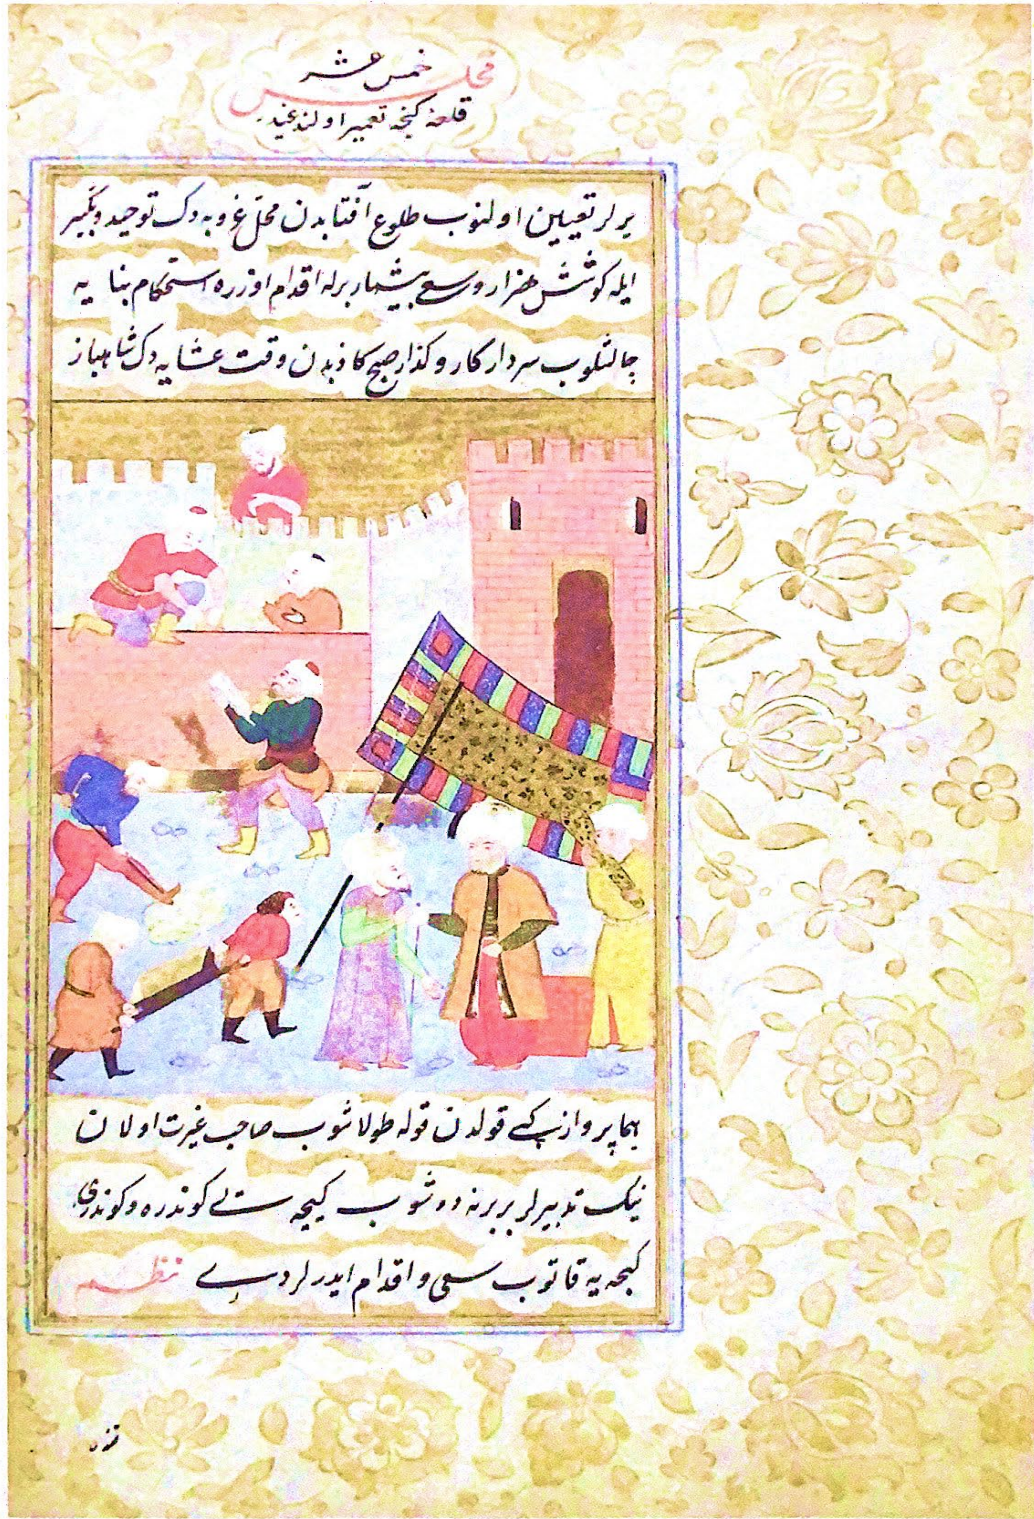 مجلس خمس عشر
قلعهٔ کنجه تعمیر اولندوغیدر
یرلر تعیین اولنوب طلوع آفتابدن محل غروبه دک توحید و تکبیر
ایله کوشش هزار و سعی بیشمار برله اقدام اوزره استحکام بنا یه
چالشلوب سردار کار و کذار صبح کاذبدن وقت عشایه دک شاهباز
هما پرواز کبی قولدن قوله طولاشوب صاحب غیرت اولان
نیک تدبیرلر بربرنه دوشوب کیجه سنی کوندزه و کوندزی
کیجه یه قاتوب سعی و اقدام ایدرلردی نظم